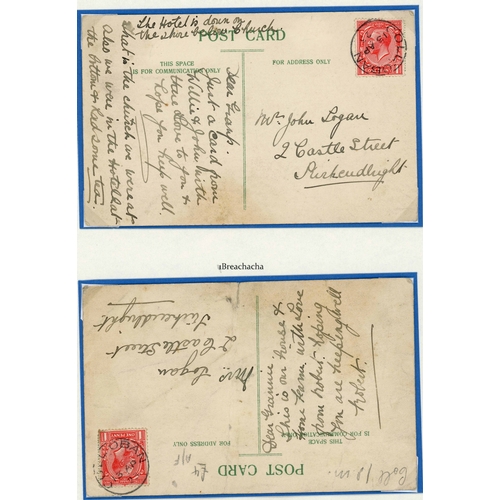 The Hotel is down on
the shore below Church.
POST CARD
THIS SPACE
IS FOR COMMUNICATION ONLY
FOR ADDRESS ONLY
COLL OBAN
13 AP
Dear Granp.
Just a card from
Willie & John with
their love to you &
hope you keep well.
Mr John Logan
2 Castle Street
Kirkcudbright
that is the church we were at
also we were in the Hotel at
the bottom & had some tea.
Breachacha
Mrs Logan
2 Castle Street
Kirkcudbright
Dear Grannie
This is our house &
Home Farm with Love
from Robert hoping
you are keeping well
Robert.
THIS SPACE
IS FOR COMMUNICATION ONLY
FOR ADDRESS ONLY
POST CARD
COLL OBAN
£4